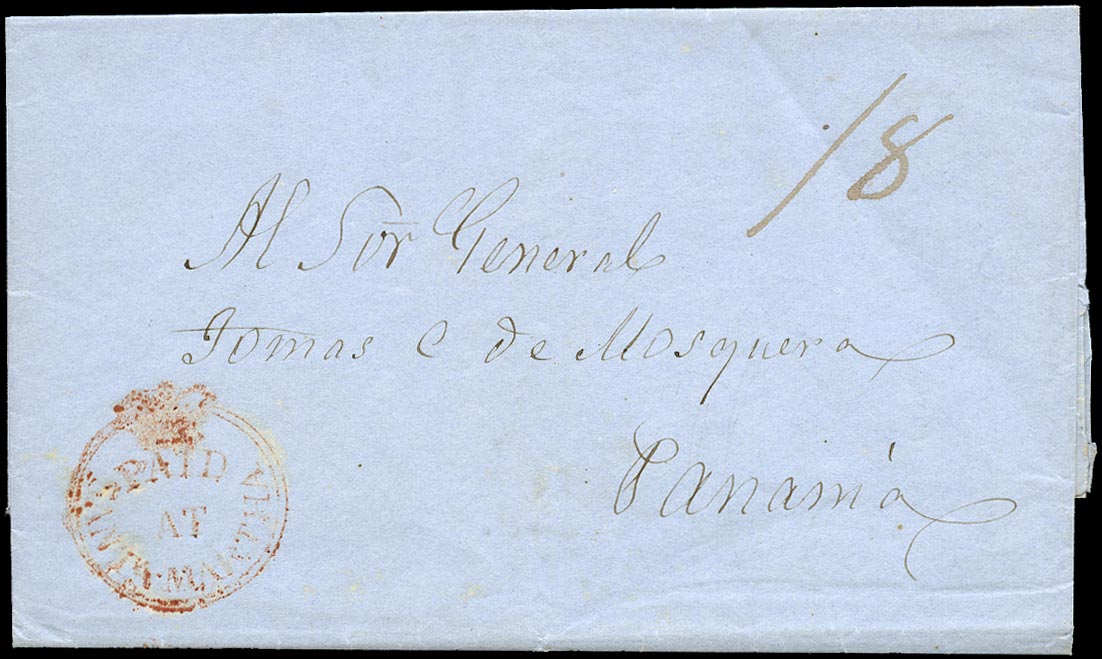 /8
Al Sor General
Tomas C de Mosquera
Panamá
PAID
AT
SANTA·MARTHA